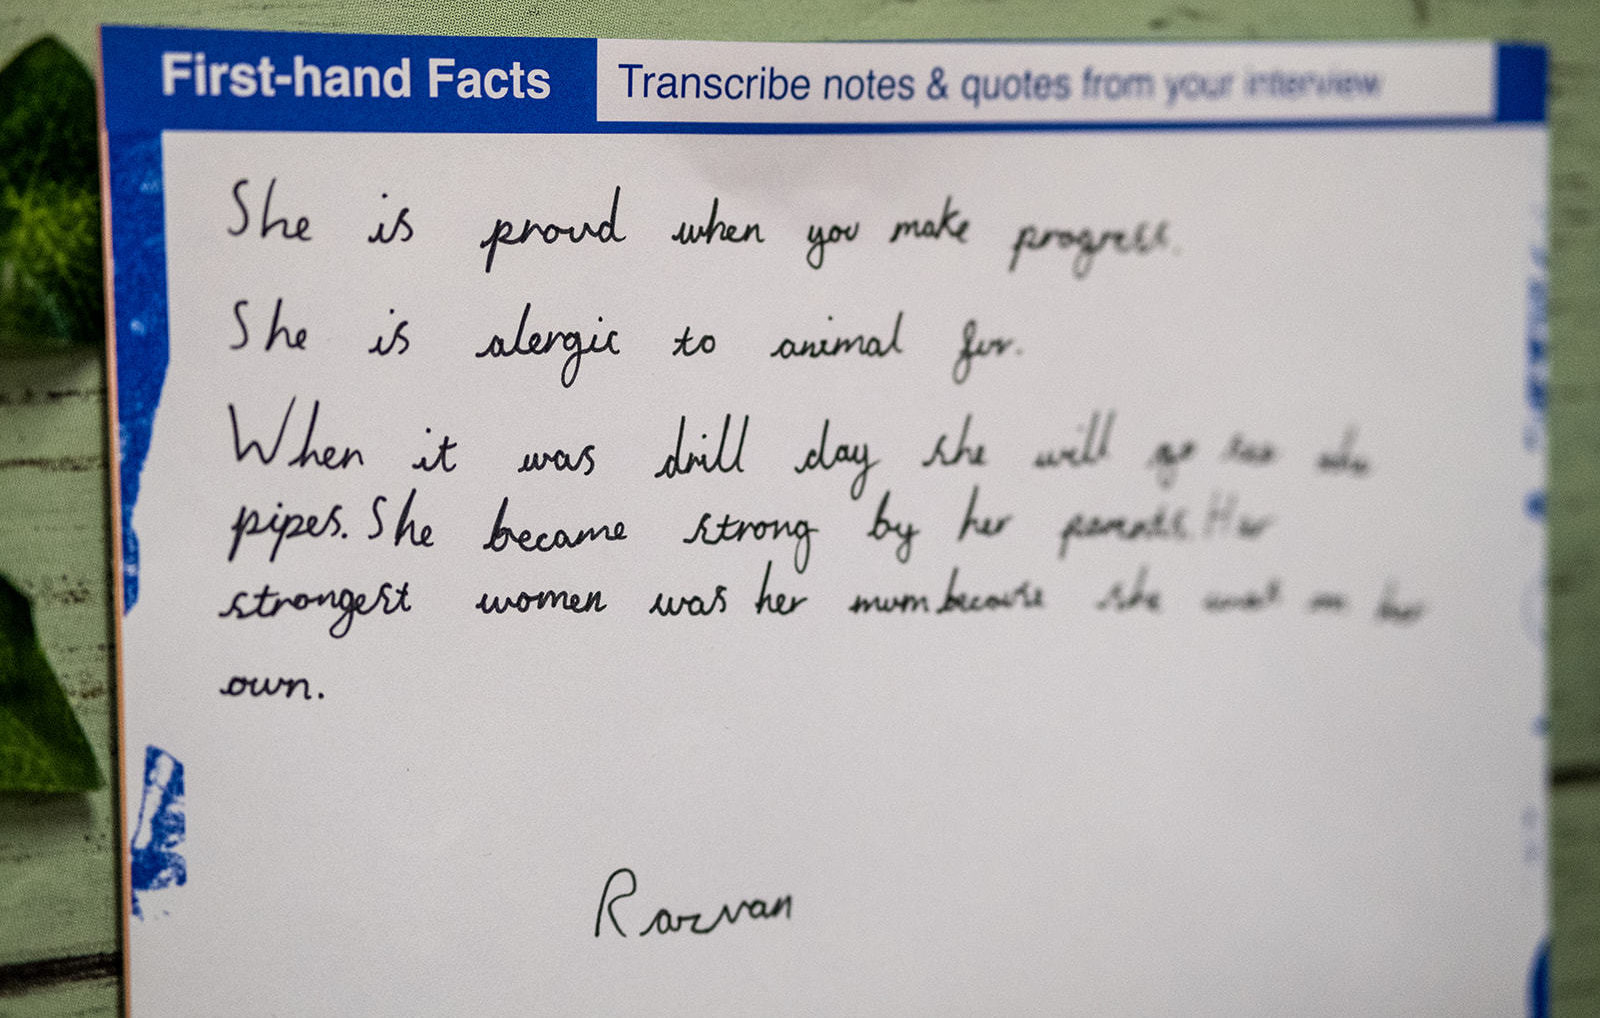 First-hand Facts Transcribe notes & quotes from your interview
She is proud when you make progress.
She is alergic to animal fur.
When it was drill day she will go see the
pipes. She became strong by her parents. Her
strongest women was her mum because she went on her
own.
Razvan